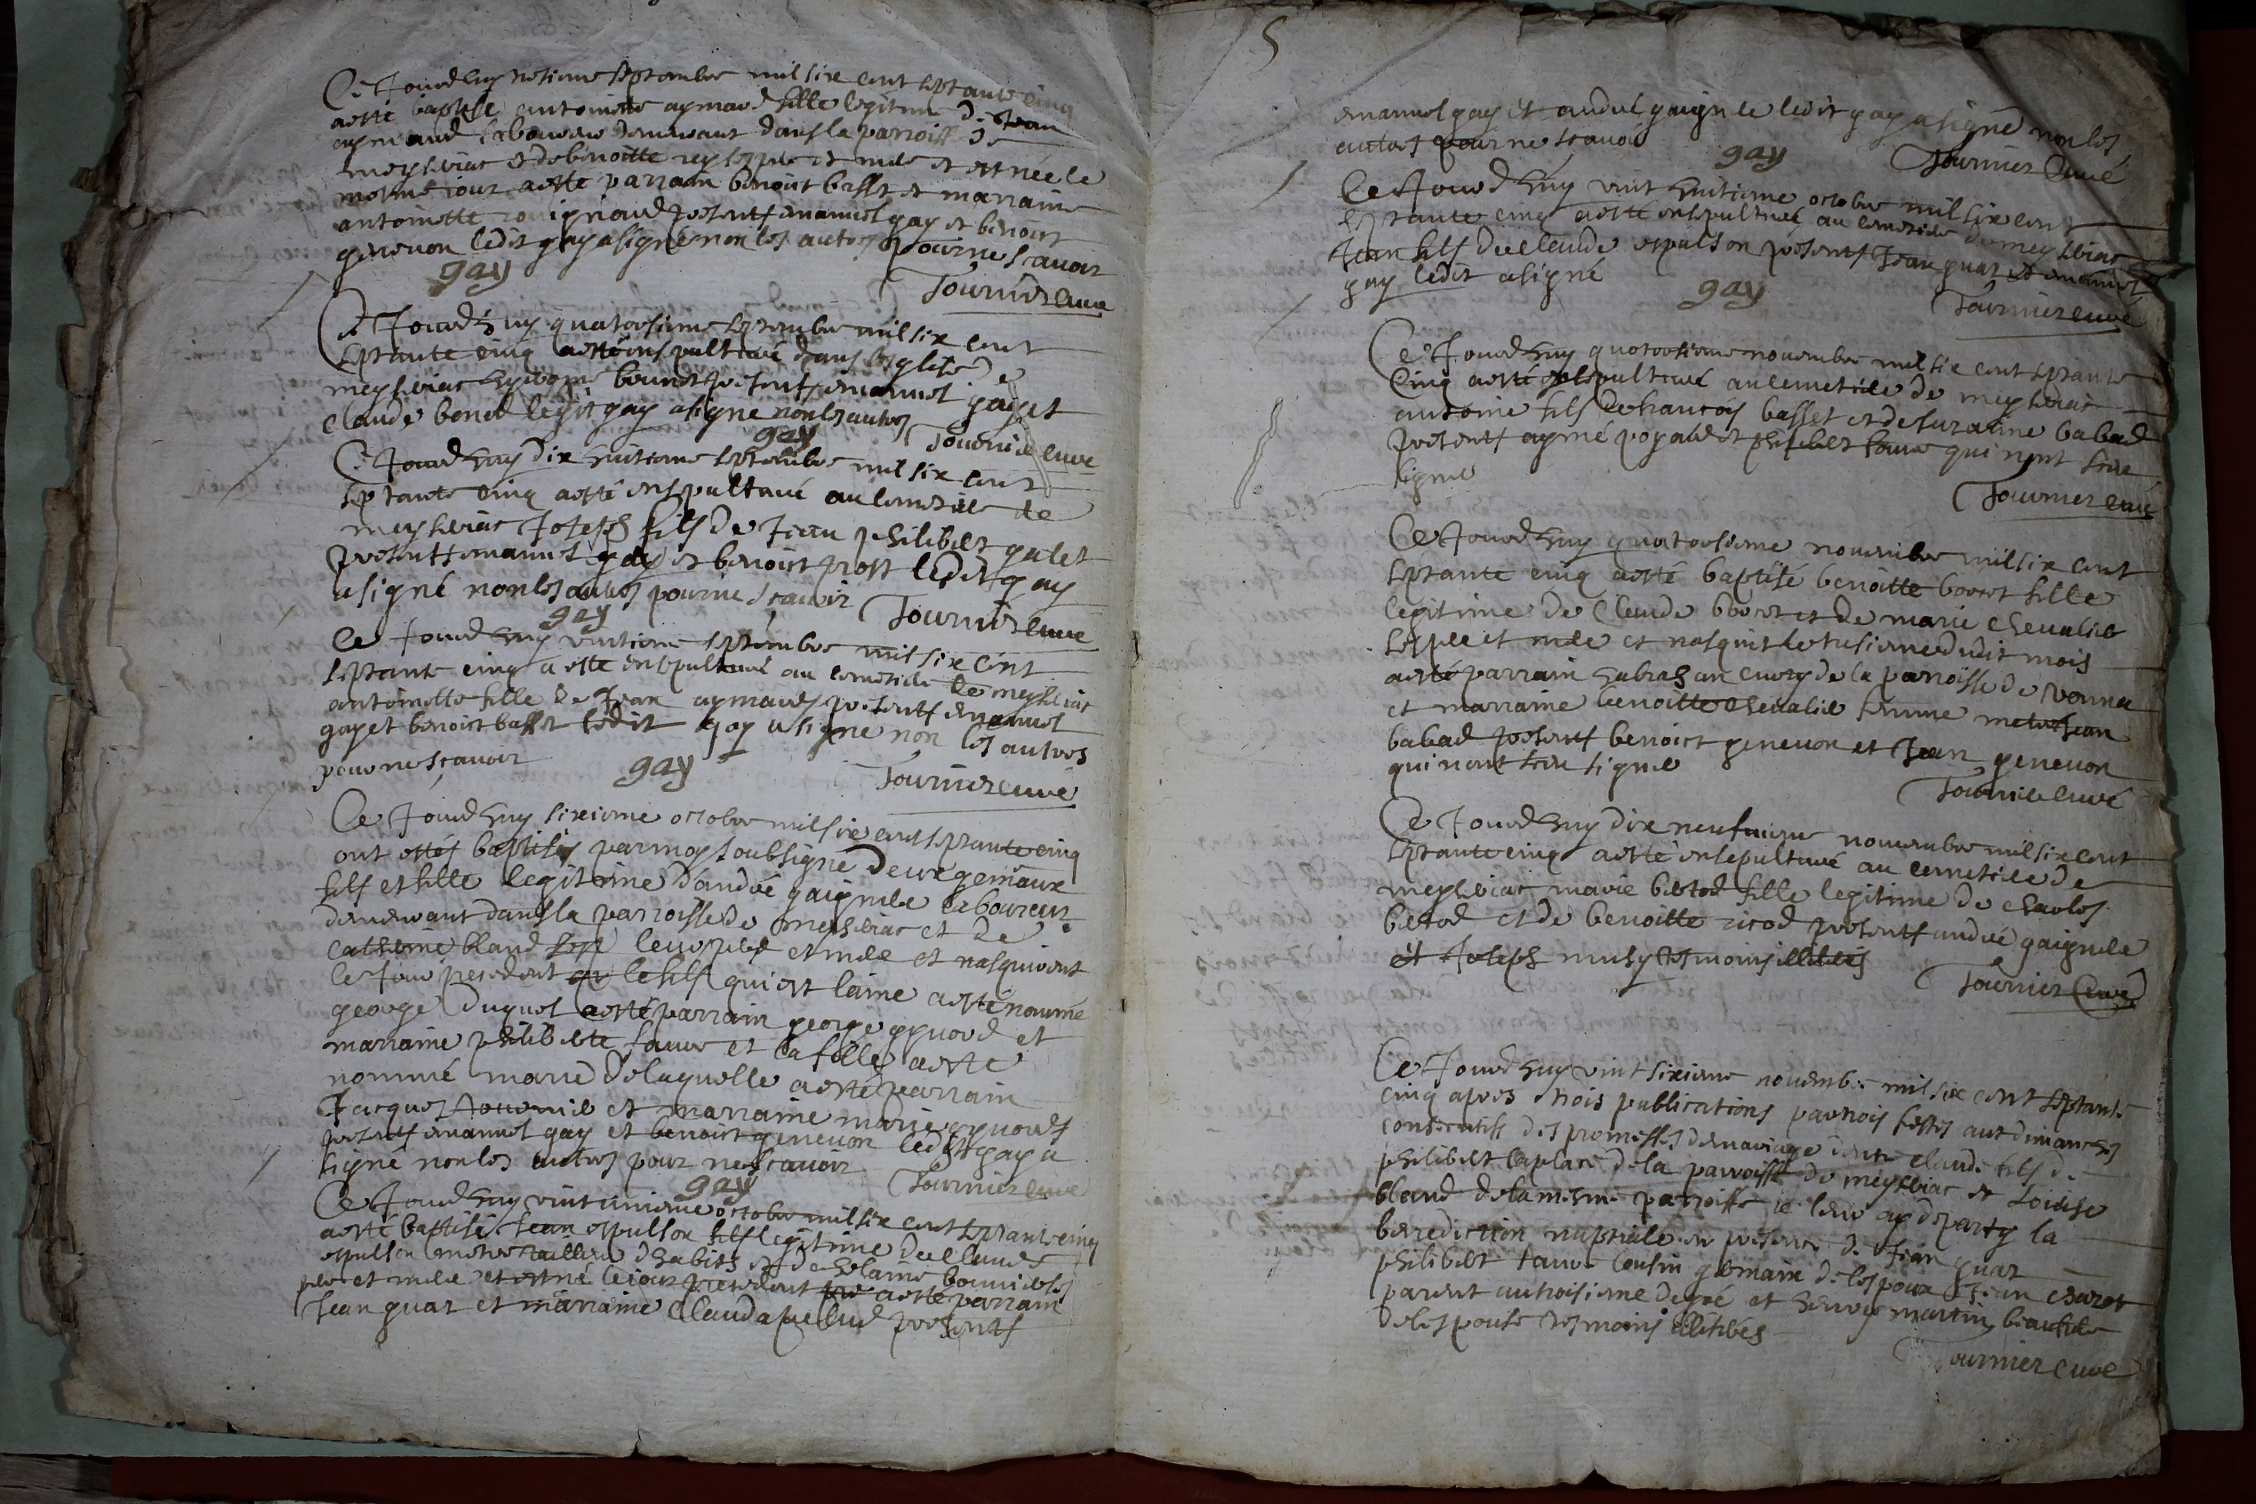 Ce Jourdhuy septembre mil six cent septante cinq
a esté baptisé antoinette aymard fille legitime de Jean
aymard laboureur demeurant dans la parroisse de
meyseriac et de benoitte rey ses pere et mere et est née le
mesme iour a esté parrain benoist basset et marraine
antoinette presents emanuel gay et benoist
genevon ledit gay a signé non les autres pour ne scavoir
gay
Tournier curé
Ce Jourdhuy quatorsieme septembre mil six cent
septante cinq a esté ensepulturé dans lesglise de
meyseriac presents emanuel gay et
Claude ledit gay a signé non les autres
gay Tournier curé
Ce Jourdhuy dix huitieme septembre mil six cent
septante cinq a esté ensepulturé au cemetiere de
meyseriac Joseph fils de Jean philibert galet
presents emanuel gay et benoist prost ledit gay
a signé non les autres pour ne scavoir
gay Tournier curé
Ce Jourdhuy vintieme septembre mil six cent
septante cinq a esté ensepulturé au cemetiere de meyseriac
antoinette fille de Jean aymard presents emanuel
gay et benoist basset ledit gay a signé non les autres
pour ne scavoir
gay
Tournier curé
Ce Jourdhuy sixieme octobre mil six cent septante cinq
ont estés baptisés par moy soubsigné deux gemaux
fils et fille legitime dandré gaignele laboureur
demeurant dans la parroisse de meyseriac et de
Catherine bland leur pere et mere et nasquirent
le Jour precedent le fils qui est laine a esté nommé
george duquel a esté parrain george et
marraine philiberte favre et la fille a esté
nommé marie de laquelle a esté parrain
Jacques Tournier et marraine marie
presents emanuel gay et benoist genevon ledit gay a
signé non les autres pour ne scavoir
gay Tournier curé
Ce Jourdhuy vint unieme octobre mil six cent septante cinq
a esté baptisé Jean espulson fils legitime de Claude
espulson dhabits et de
pere et mere et est né le iour precedent a esté parrain
Jean guat et marraine Clauda presents
5
emanuel gay et andre gaignele ledit gay a signé non les
autres pour ne scavoir
gay
Tournier Curé
Ce Jourdhuy vint huitieme octobre mil six cent
septante cinq a esté ensepulturé au cemetiere de meyseriac
Jean fils de Claude espulson presents Jean guat et emanuel
gay ledit a signé
gay
Tournier curé
Ce Jourdhuy quatorsieme novembre mil six cent septante
cinq a esté ensepulturé au cemetiere de meyseriac
antoine fils de francois basset et de suzanne babad
presents aymé et philibert favre qui nont sceu
signer
Tournier curé
Ce Jourdhuy quatorsieme novembre mil six cent
septante cinq a esté baptisé benoitte fille
legitime de Claude et de marie chevalier
ses pere et mere et nasquit le tresieme dudit mois
a esté parrain de la parroisse de
et marraine benoitte chevalier femme Jean
babad presents benoist genevon et Jean genevon
qui nont sceu signer
Tournier curé
Ce Jourdhuy dix neufvieme novembre mil six cent
septante cinq a esté ensepulturé au cemetiere de
meyseriac marie fille legitime de charles
et de benoitte ricod presents andré gaignele
et Joseph tesmoins illiterés
Tournier Curé
Ce Jourdhuy vint sixieme novembre mil six cent septante
cinq apres trois publications par trois festes aut dimanches
consecutifs des promesses de mariage entre claude fils de
philibert laplace de la parroisse de meyseriac et Louise
bland de la mesme parroisse ie leur ay departy la
benediction nuptiale en presence de Jean guat
philibert favre cousin germain de lespoux Jean
parent au troisieme degré et martin
de lespouse tesmoins illiterés
Tournier curé